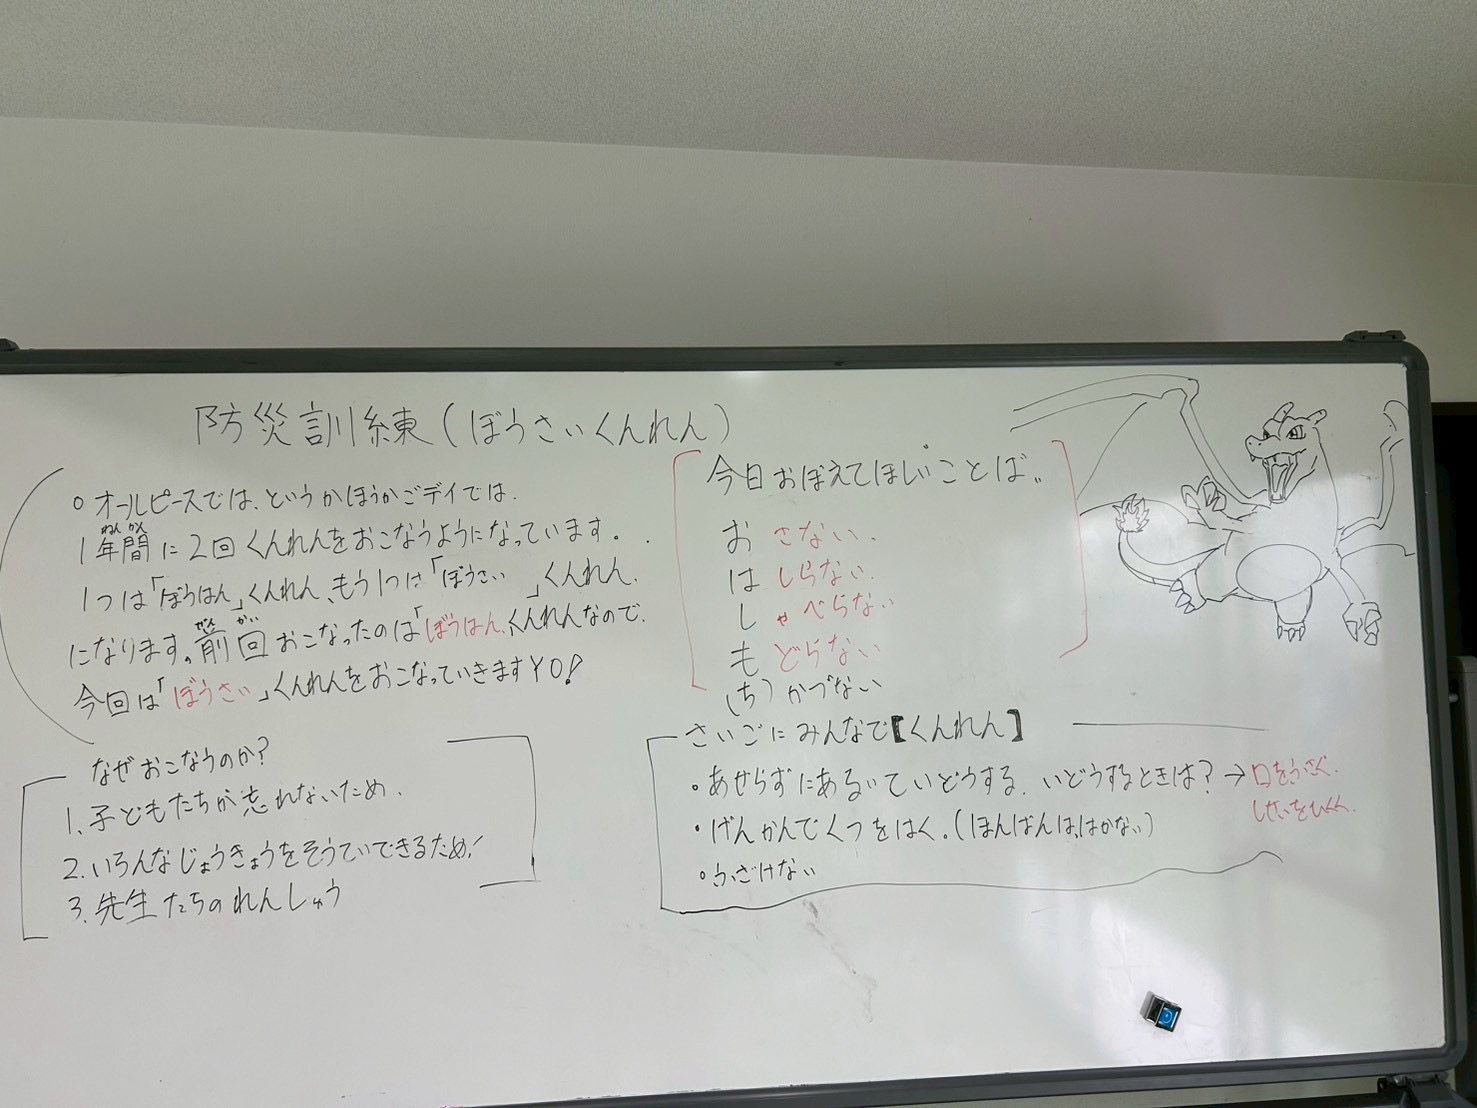 防災訓練(ぼうさいくんれん)
○オールピースでは、というかほうかごデイでは、
ねん かん
1年間に2回くんれんをおこなうようになっています。
1つは「ぼうはん」くんれん、もう1つは「ぼうさい 」くんれん
ぜん かい
になります。前回おこなったのは「ぼうはん」くんれんなので、
今回は「ぼうさい」くんれんをおこなっていきますYO!
なぜおこなうのか?
1.子どもたちが忘れないため、
2.いろんなじょうきょうをそうていできるため!
3.先生たちのれんしゅう
今日おぼえてほしいことば
おさない、
はしらない、
しゃべらない
もどらない
(ち)かづない
さいごにみんなで【くんれん】
・あせらずにあるいていどうする、いどうするときは?→口をふさぐ、
しせいをひくく、
・げんかんでくつをはく。(ほんばんは、はかない)
・ふざけない